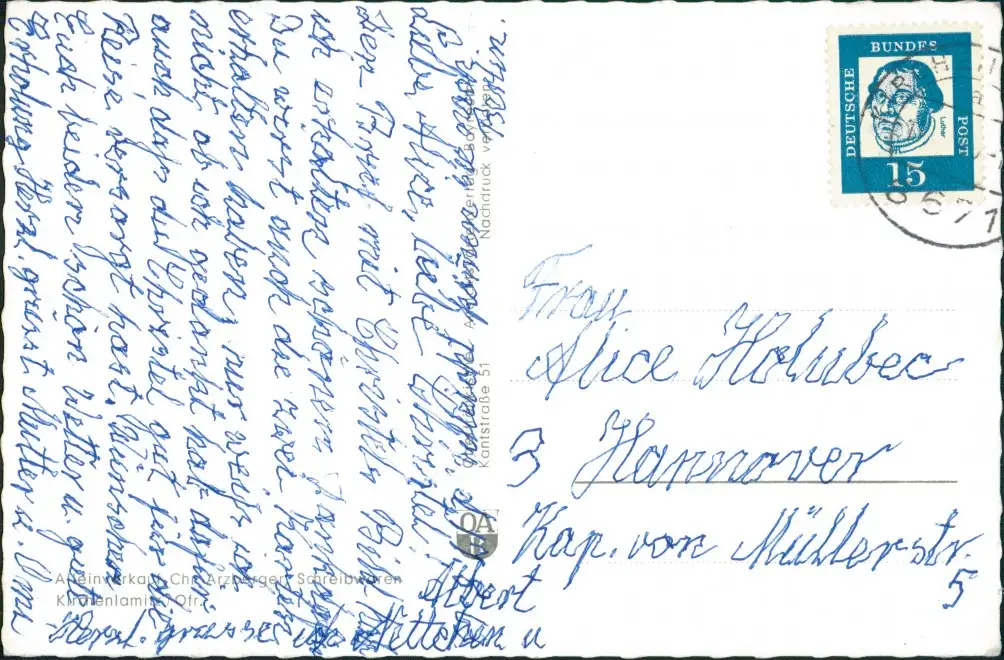 Liebe Alice, liebe Christel!
Den Brief mit Christels Bild hab
ich erhalten schönen Dank hoffe
Du wirst auch die zwei Karten
erhalten haben, nur weiß ich
nicht ob ich gedankt hab dafür
auch daß du Christel gut für die
Reise versorgt hast, wünsche
Euch beiden schön Wetter u. gute
Erholung Herzl. grüsst Mutter u. Oma
Herzl. grüsse von Nettchen u
Albert
Frau
Alice Holubec
3 Hannover
Kap. von Müllerstr.
5
DEUTSCHE
BUNDES
POST
Luther
15
8671
Nachdruck verboten
Kantstraße 51
OA
Alleinverkauf: Chr. Arzberger, Schreibwaren
Kirchenlamitz/Ofr.